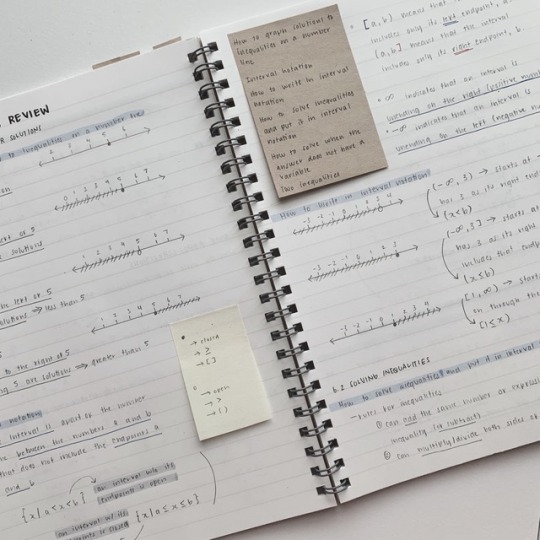 REVIEW
to inequalities on a number line
0 1 2 3 4 5 6 7
left of 5
solutions
the left of 5
solutions ⇒ less than 5
1 2 3 4 5 6 7
to the right of 5
ng 5 are solutions ⇒ greater than 5
notation
interval is about the number
between the numbers a and b
that does not include the endpoints a
and b
{x|a<x<b}
an interval w/o its
endpoints is open
an interval w/ its
{x|a≤x≤b}
• → closed
→ ≥
→ []
○ → open
→ >
→ ()
How to graph solutions to
inequalities on a number
line
Interval notation
How to write in interval
notation
How to solve inequalities
and put in interval
notation
How to solve when the
answer does not have a
variable
Two inequalities
• [a,b) means that
includes only its left endpoint, a.
(a,b] means that the interval
includes only its right endpoint, b.
• ∞ indicates that an interval is
unending on the right (positive
• -∞ indicates that an interval is
unending on the left (negative
How to write in interval notation?
-3 -2 -1 0 1 2 3 4
(-∞,3) → starts at
has 3 as its right
(x<b)
-3 -2 -1 0 1 2 3
(-∞,3] → starts
has 3 as its right
includes that
(x≤b)
-1 -2 -1 0 1 2 3 4
[1,∞) → starts
on through the
[1≤x)
6.2 SOLVING INEQUALITIES
How to solve inequalities and put it in interval
-rules for inequalities
① can add the same number or expression
inequality (or subtract)
② can multiply/divide both sides of